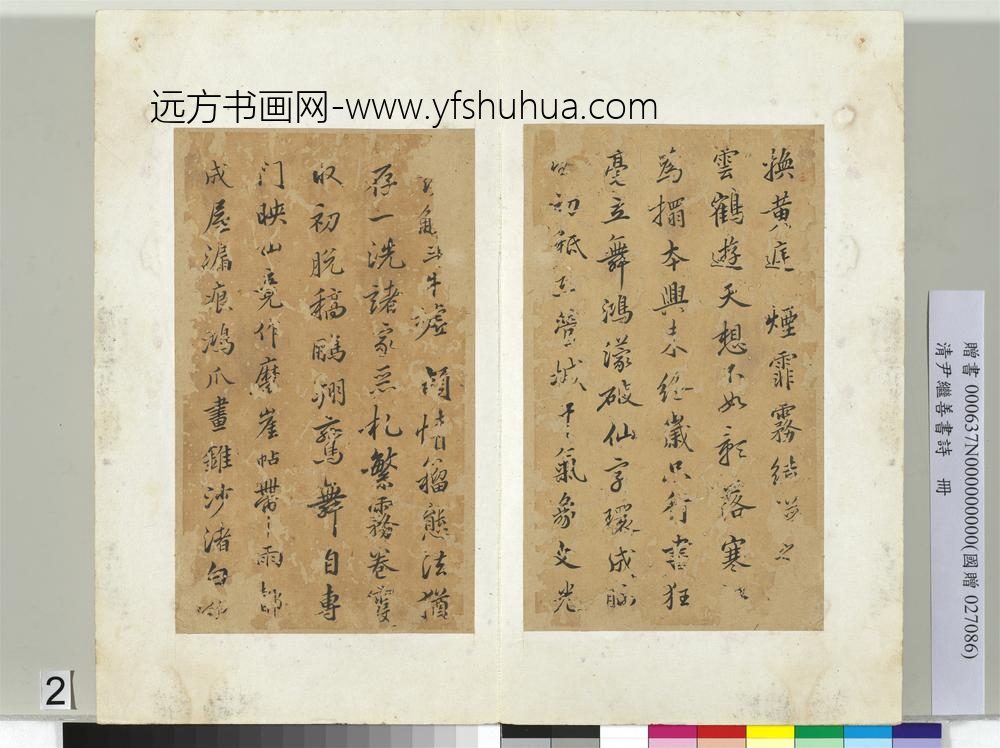 远方书画网-www.yfshuhua.com
換黃庭 煙霏霧結
雲鶴遊天想不如 影落寒
為搨本興未經歲只行書狂
毫立舞鴻濛破仙字環成脉
初紙 管城 氣象文光
龜 牛 頡 籀態法猶
存一洗諸家 札繁霧卷雙
收初脫稿鵬翔鸞舞自專
門映山亮作磨崖帖帶 雨
成屋漏痕鴻爪畫錐沙渚白
贈書 000637N000000000(國贈 027086)
清尹繼善書詩 冊
2